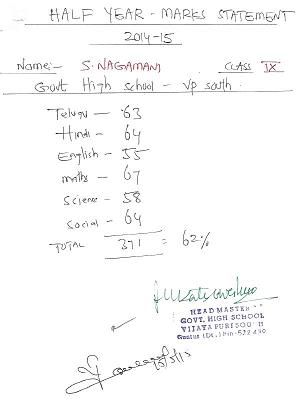 HALF YEAR - MARKS STATEMENT
2014-15
Name:- S. NAGAMANI CLASS IX
Govt High school - vp south.
Telugu - 63
Hindi - 64
English - 55
maths - 67
Science - 58
Social - 64
TOTAL 371 = 62%
HEAD MASTER
GOVT. HIGH SCHOOL
VIJAYA PURI SOUTH
Guntur (Dt.) Pin-522 439